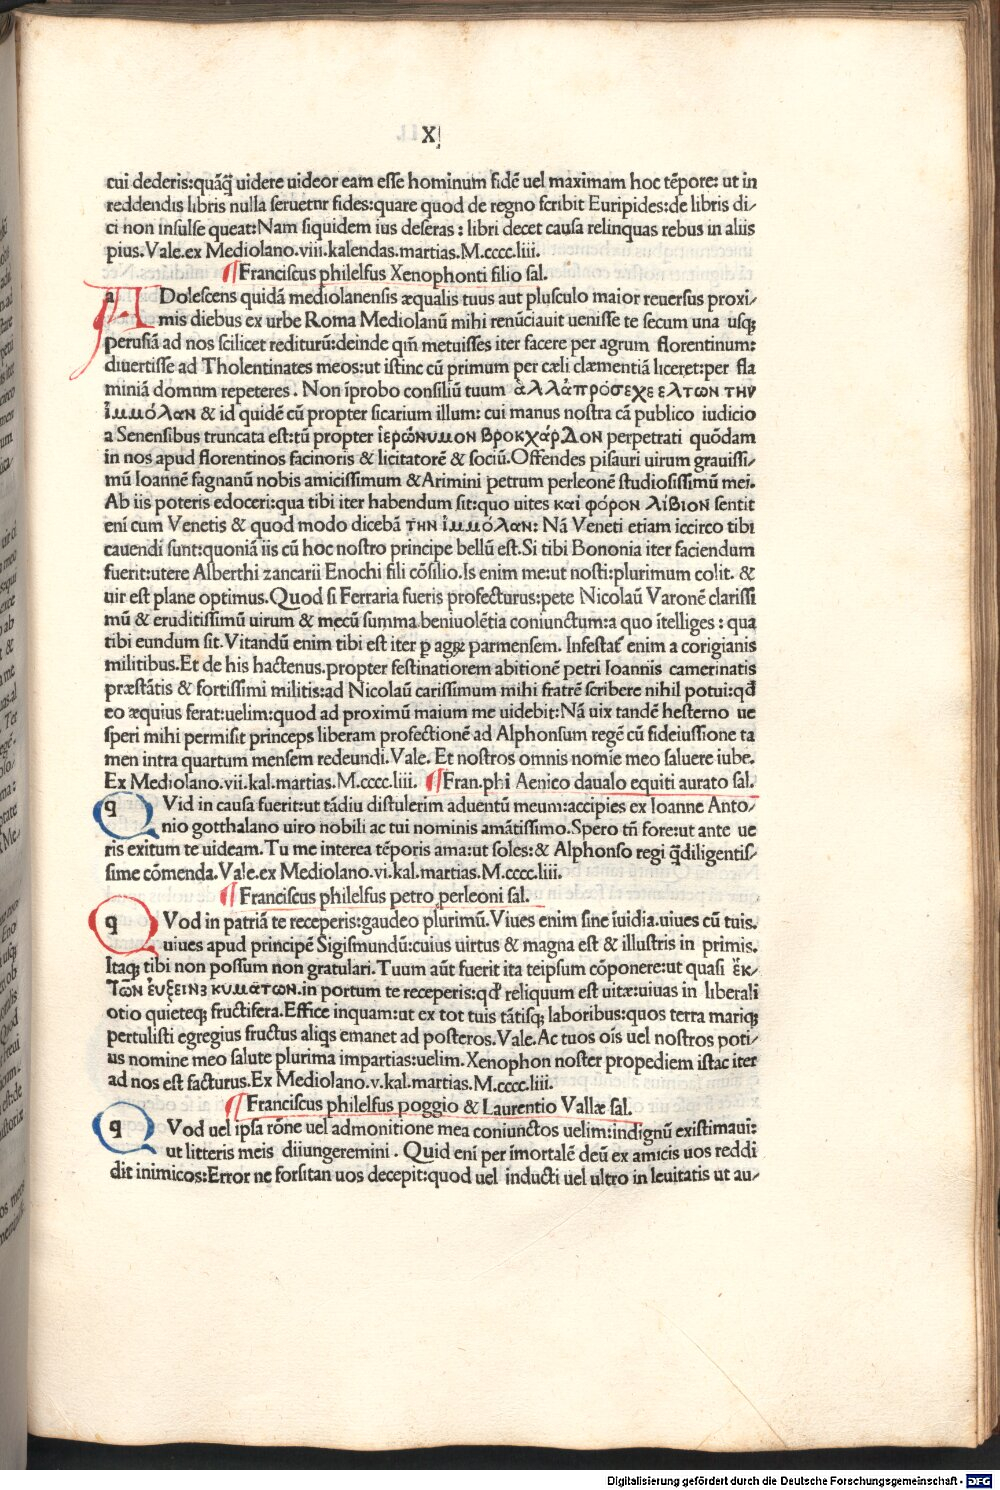 X
cui dederis:quāq̄ uidere uideor eam esse hominum fidē uel maximam hoc tēpore: ut in
reddendis libris nulla seruetnr fides:quare quod de regno scribit Euripides:de libris di/
ci non insulse queat:Nam siquidem ius deseras : libri decet causa relinquas rebus in aliis
pius.Vale.ex Mediolano.viii.kalendas.martias.M.cccc.liii.
¶Franciscus philelfus Xenophonti filio sal.
aDolescens quidā mediolanensis æqualis tuus aut plusculo maior reuersus proxi/
mis diebus ex urbe Roma Mediolanū mihi renūciauit uenisse te secum una usq;
perusiā ad nos scilicet rediturū:deinde qm̄ metuisses iter facere per agrum florentinum:
diuertisse ad Tholentinates meos:ut istinc cū primum per cæli clæmentiā liceret:per fla
miniā domum repeteres . Non īprobo consiliū tuum ἀλλὰπρόσεχε ελτων την
ἰμμόλαν & id quidē cū propter sicarium illum: cui manus nostra cā publico iudicio
a Senensibus truncata est:tū propter ἱερώνυμον βροκχάρδον perpetrati quōdam
in nos apud florentinos facinoris & licitatorē & sociū.Offendes pisauri uirum grauissi/
mū Ioannē fagnanū nobis amicissimum &Arimini petrum perleonē studiosissimū mei.
Ab iis poteris edoceri:qua tibi iter habendum sit:quo uites καὶ φόρον λίβιον sentit
enī cum Venetis & quod modo dicebā την ἰμμόλαν: Nā Veneti etiam iccirco tibi
cauendi sunt:quoniā iis cū hoc nostro principe bellū est.Si tibi Bononia iter faciendum
fuerit:utere Alberthi zancarii Enochi fili cōsilio.Is enim me:ut nosti:plurimum colit. &
uir est plane optimus.Quod si Ferraria fueris profecturus:pete Nicolaū Varonē clarissi
mū & eruditissimū uirum & mecū summa beniuolētia coniunctum:a quo ītelliges : qua
tibi eundum sit.Vitandū enim tibi est iter p agrꝝ parmensem. Infestat̄ enim a corigianis
militibus.Et de his hactenus.propter festinatiorem abitionē petri Ioannis camerinatis
præstātis & fortissimi militis:ad Nicolaū carissimum mihi fratrē scribere nihil potui:qd̄
eo æquius ferat:uelim:quod ad proximū maium me uidebit:Nā uix tandē hesterno ue
speri mihi permisit princeps liberam profectionē ad Alphonsum regē cū fideiussione ta
men intra quartum mensem redeundi.Vale. Et nostros omnis nomie meo saluere iube.
Ex Mediolano.vii.kal.martias.M.cccc.liii. ¶Fran.phi Aenico daualo equiti aurato sal.
qVid in causa fuerit:ut tādiu distulerim aduentū meum:accipies ex Ioanne Anto/
nio gotthalano uiro nobili ac tui nominis amātissimo.Spero tn̄ fore:ut ante ue
ris exitum te uideam.Tu me interea tēporis ama:ut soles:& Alphonso regi q̄diligentis/
sime cōmenda.Vale.ex Mediolano.vi.kal.martias.M.cccc.liii.
¶ Franciscus philelfus petro perleoni sal.
qVod in patriā te receperis:gaudeo plurimū.Viues enim sine īuidia.uiues cū tuis.
uiues apud principē Sigismundū:cuius uirtus & magna est & illustris in primis.
Itaq; tibi non possum non gratulari.Tuum aūt fuerit ita teipsum cōponere:ut quasi ἐκ/
των ἐυξεινȣ κυμάτων.in portum te receperis:qd' reliquum est uitæ:uiuas in liberali
otio quieteq; fructifera.Effice inquam:ut ex tot tuis tātisq; laboribus:quos terra mariq;
pertulisti egregius fructus aliqs emanet ad posteros.Vale.Ac tuos oīs uel nostros poti/
us nomine meo salute plurima impartias:uelim.Xenophon noster propediem istac iter
ad nos est facturus.Ex Mediolano.v.kal.martias.M.cccc.liii.
¶Franciscus philelfus poggio & Laurentio Vallæ sal.
qVod uel ipsa rōne uel admonitione mea coniunctos uelim:indignū existimaui:
ut litteris meis diiungeremini . Quid enī per īmortalē deū ex amicis uos reddi
dit inimicos:Error ne forsitan uos decepit:quod uel inducti uel ultro in leuitatis ut au/
Digitalisierung gefördert durch die Deutsche Forschungsgemeinschaft - DFG